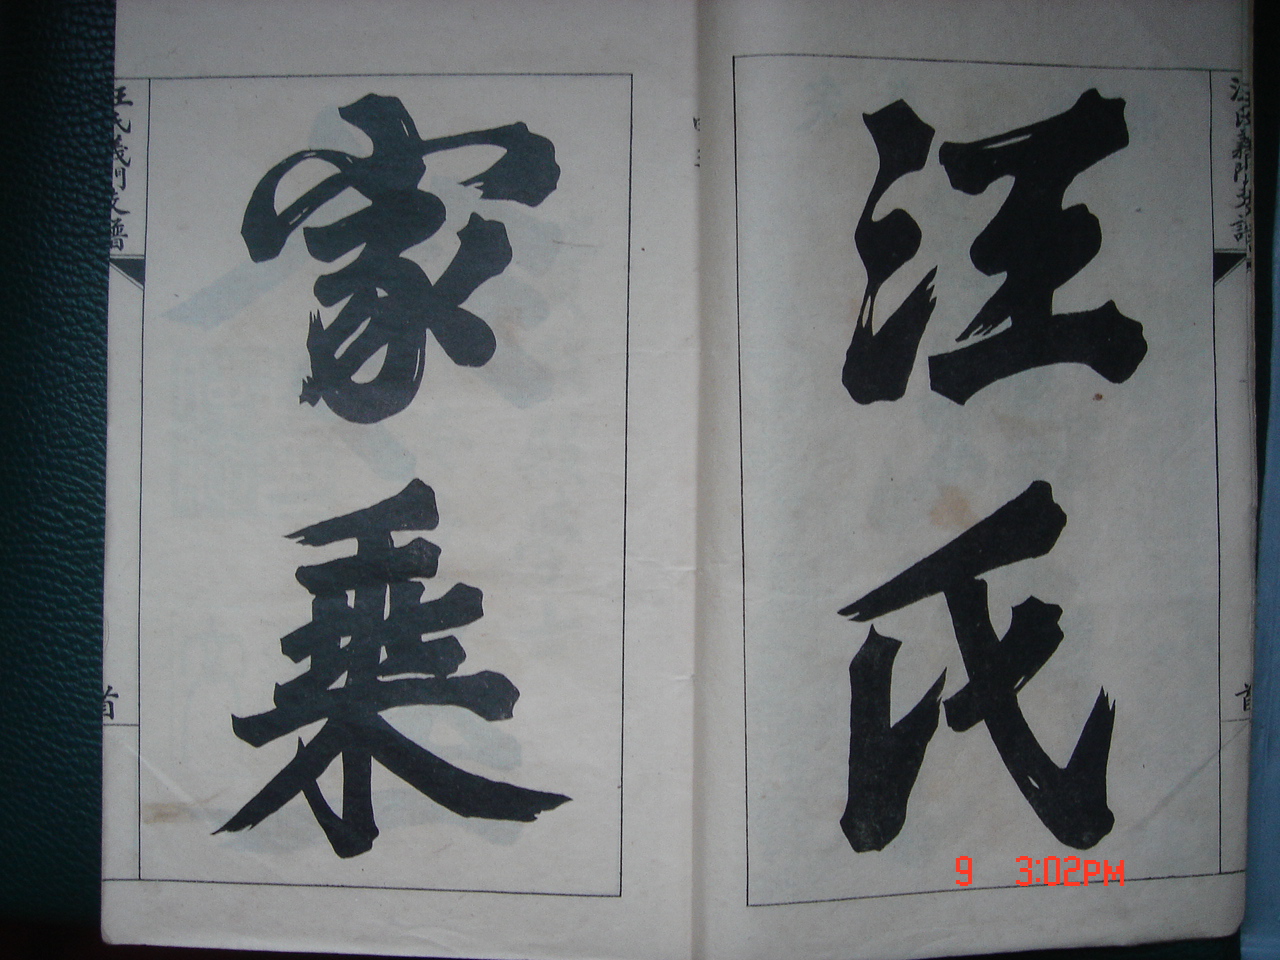 汪氏義門支譜
首
汪氏
家乘
汪氏義門支譜
首
9 3:02PM